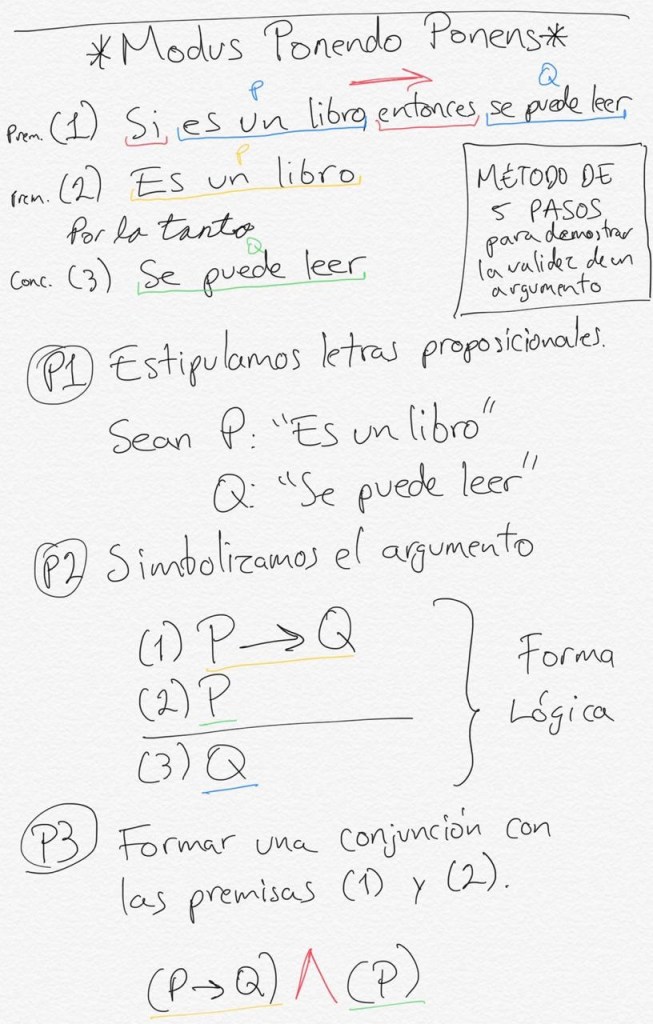 *Modus Ponendo Ponens*
P → Q
Prem. (1) Si es un libro entonces se puede leer
P
Prem. (2) Es un libro
Por lo tanto
Q
Conc. (3) Se puede leer
MÉTODO DE
5 PASOS
para demostrar
la validez de un
argumento
P1 Estipulamos letras proposicionales.
Sean P: "Es un libro"
Q: "Se puede leer"
P2 Simbolizamos el argumento
(1) P → Q
(2) P
(3) Q
Forma
Lógica
P3 Formar una conjunción con
las premisas (1) y (2).
(P → Q) ∧ (P)